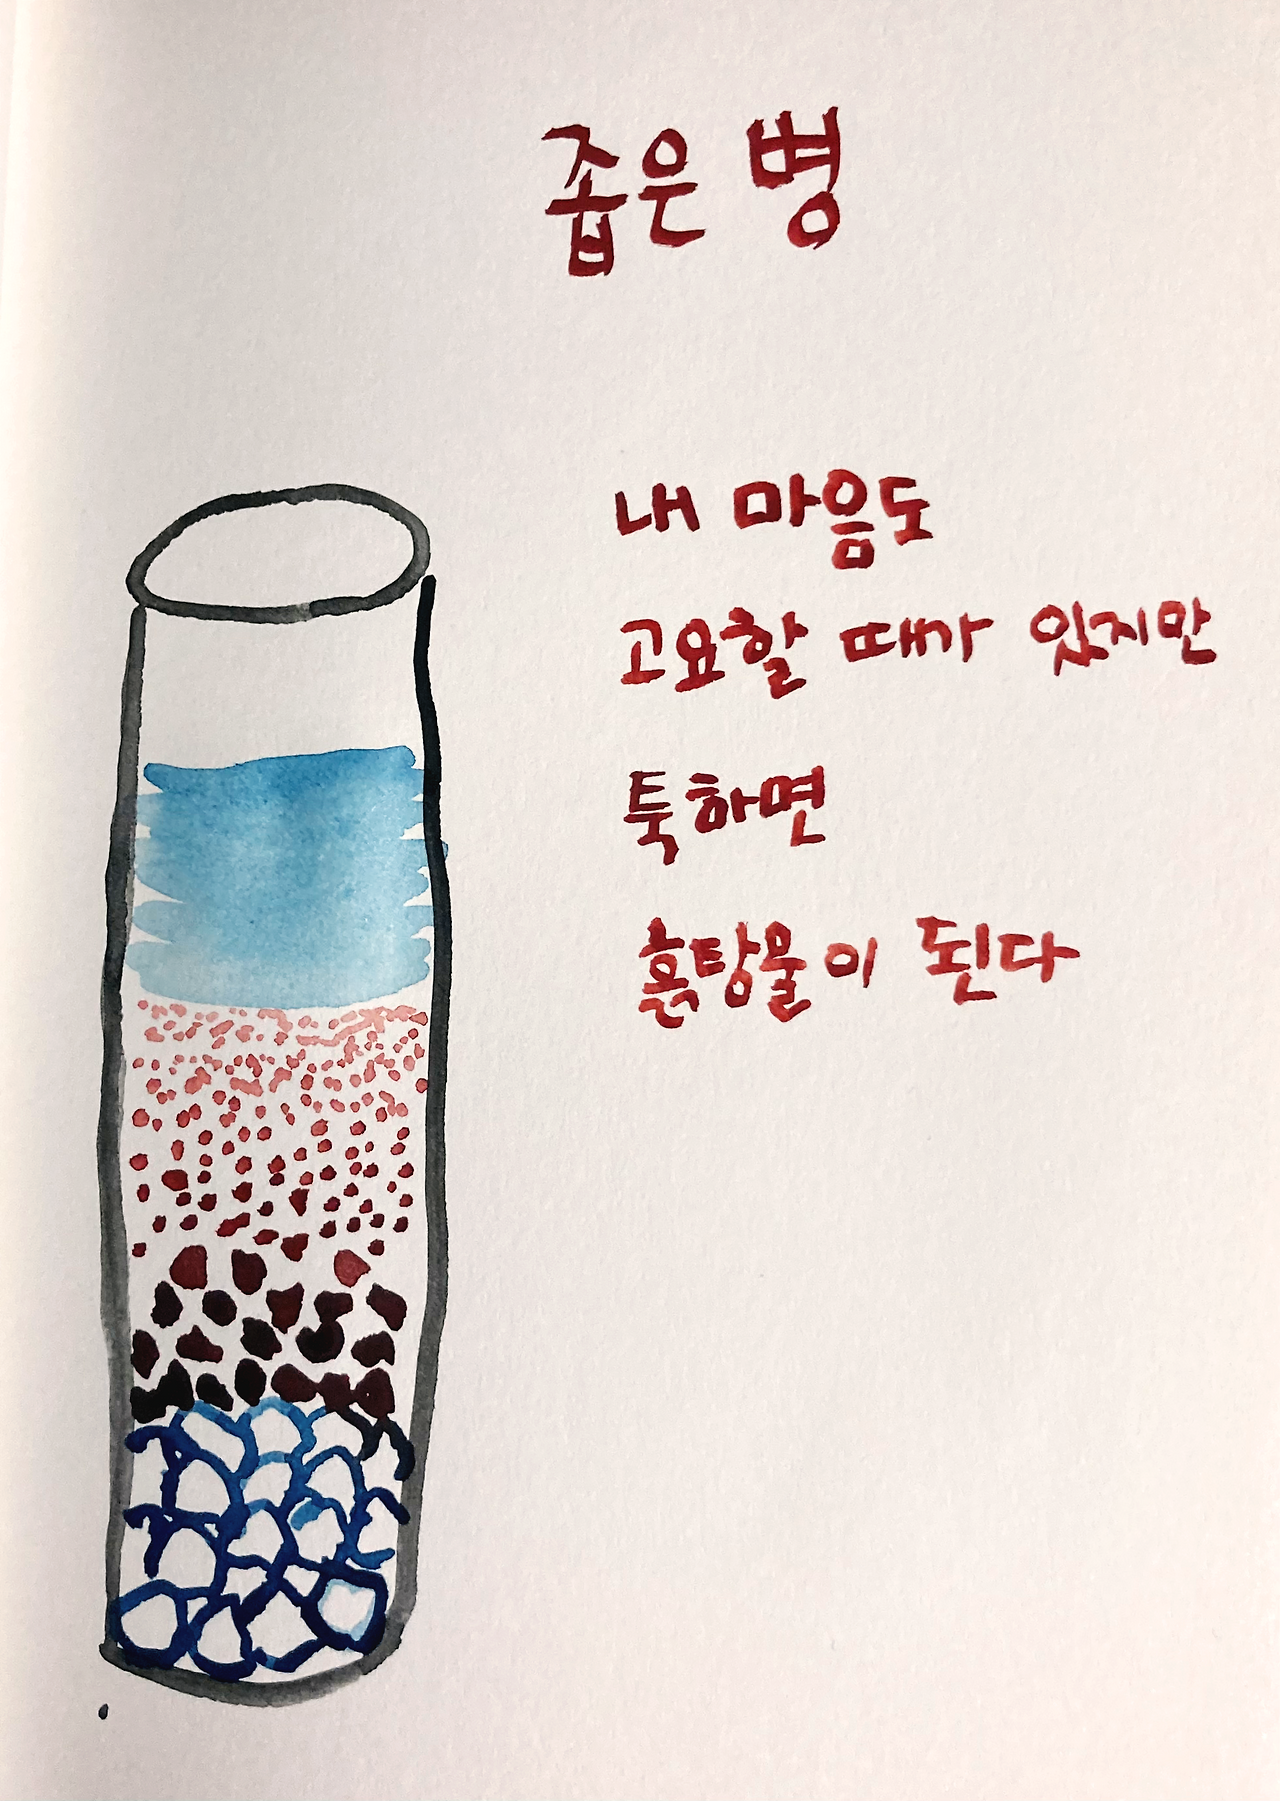 좁은 병
내 마음도
고요할 때가 있지만
툭하면
흙탕물이 된다